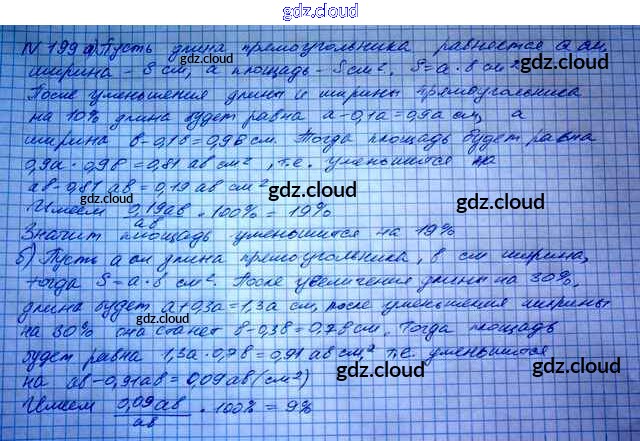 gdz.cloud
N 199 а) Пусть длина прямоугольника равняется a см,
ширина - S см, а площадь - S см². S = a · в см²
gdz.cloud
После уменьшения длины и ширины прямоугольника
на 10% длина будет равна a - 0,1a = 0,9a см, а
ширина в - 0,1в = 0,9в см. Тогда площадь будет равна
0,9a · 0,9в = 0,81 aв см², т.е. уменьшится на
aв - 0,81 aв = 0,19 aв см²
gdz.cloud gdz.cloud
Имеем 0,19aв/aв · 100% = 19%
Значит площадь уменьшится на 19%
gdz.cloud
б) Пусть a см длина прямоугольника, в см ширина,
тогда S = a · в см². После увеличения длины на 30%,
gdz.cloud
длина будет a + 0,3a = 1,3a см, после уменьшения ширины
на 30% она станет в - 0,3в = 0,7в см. Тогда площадь
gdz.cloud
будет равна 1,3a · 0,7в = 0,91 aв см² т.е. уменьшится
на aв - 0,91aв = 0,09aв (см²)
gdz.cloud gdz.cloud
Имеем 0,09aв/aв · 100% = 9%